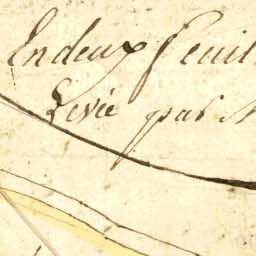 En deux feuil
Levée par